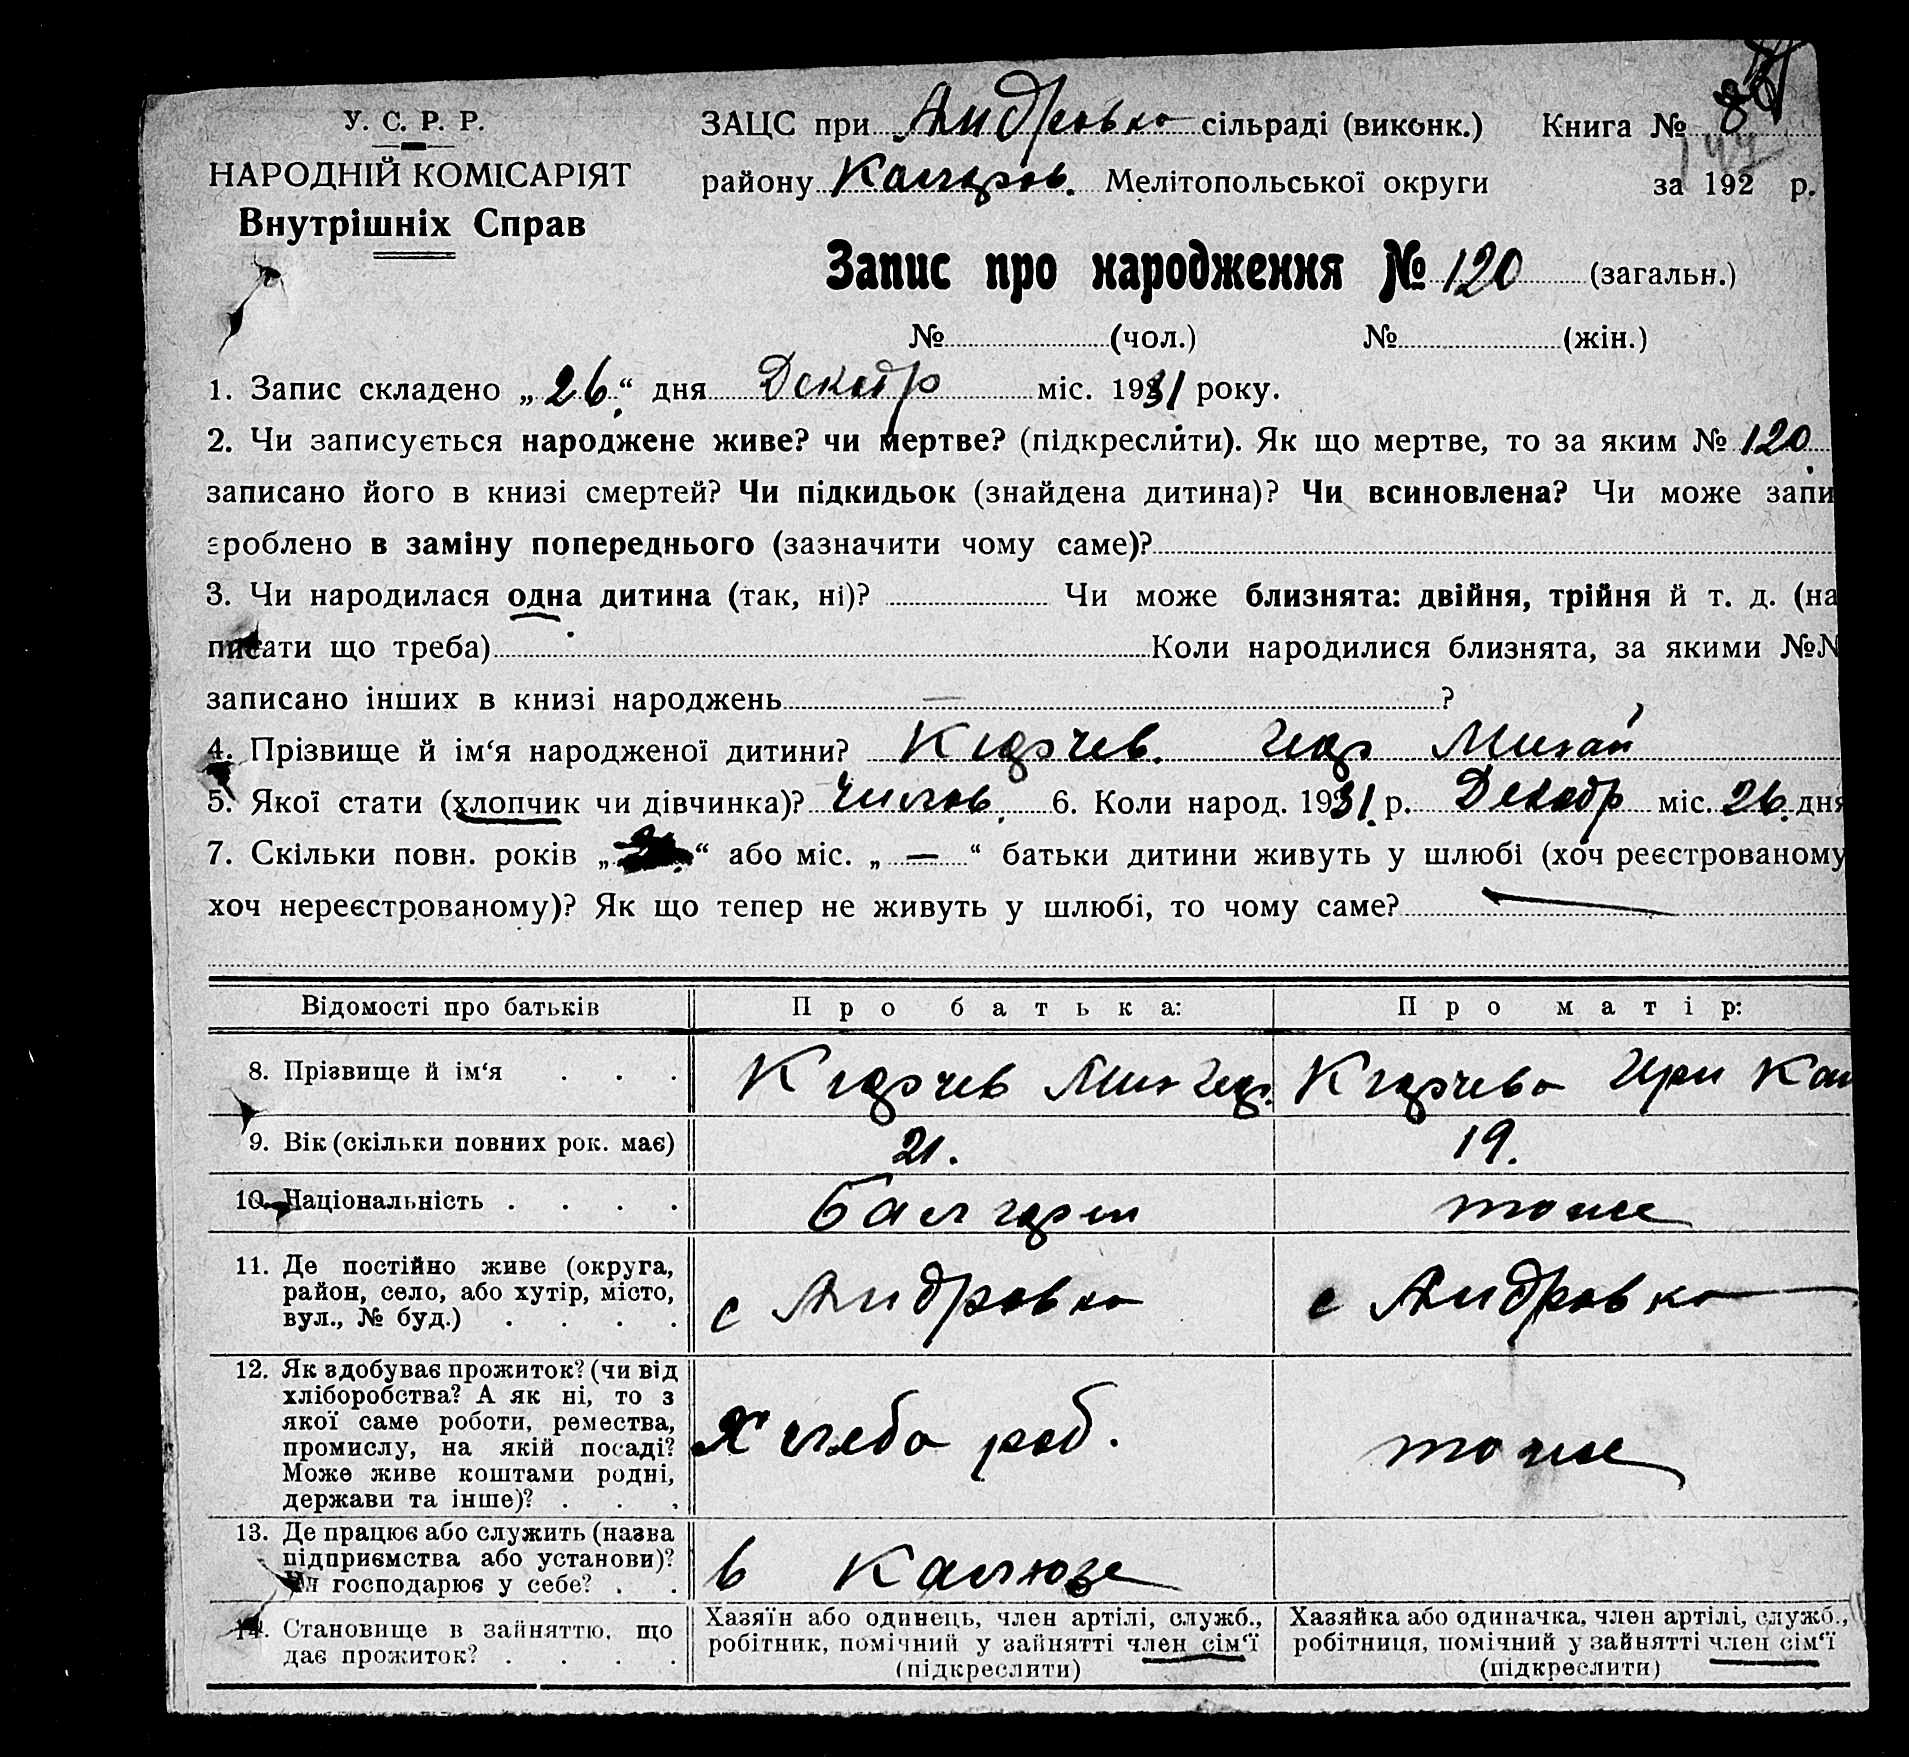 У. С. Р. Р.
НАРОДНІЙ КОМІСАРІЯТ
Внутрішніх Справ
ЗАЦС при Андровка сільраді (виконк.) Книга №
району Мелітопольської округи за 192 р.
Запис про народження № 120 (загальн.)
№ (чол.) № (жін.)
1. Запис складено „26.“ дня Декабр міс. 1931 року.
2. Чи записується народжене живе? чи мертве? (підкреслити). Як що мертве, то за яким № 120
записано його в книзі смертей? Чи підкидьок (знайдена дитина)? Чи всиновлена? Чи може запи
зроблено в заміну попереднього (зазначити чому саме)?
3. Чи народилася одна дитина (так, ні)? Чи може близнята: двійня, трійня й т. д. (на
писати що треба) Коли народилися близнята, за якими №№
записано інших в книзі народжень — ?
4. Прізвище й ім‘я народженої дитини?
5. Якої стати (хлопчик чи дівчинка)? 6. Коли народ. 1931. р. Декабр міс. 26. дня
7. Скільки повн. років „ “ або міс. „ — “ батьки дитини живуть у шлюбі (хоч реєстрованому
хоч нереєстрованому)? Як що тепер не живуть у шлюбі, то чому саме?
Відомості про батьків Про батька: Про матір:
8. Прізвище й ім‘я . . .
9. Вік (скільки повних рок. має) 21. 19.
10. Національність . . . . Балгарин тоже
11. Де постійно живе (округа,
район, село, або хутір, місто,
вул., № буд.) . . . . с Андровка с Андровка
12. Як здобуває прожиток? (чи від
хліборобства? А як ні, то з
якої саме роботи, ремества,
промислу, на якій посаді?
Може живе коштами родні,
держави та інше)? . . . Хлебороб. тоже
13. Де працює або служить (назва
підприємства або установи)?
Чи господарює у себе? . . в
14. Становище в зайняттю, що
дає прожиток? . . . .
Хазяїн або одинець, член артілі, служб.,
робітник, помічний у зайнятті член сім‘ї
(підкреслити)
Хазяйка або одиначка, член артілі, служб.,
робітниця, помічний у зайнятті член сім‘ї
(підкреслити)